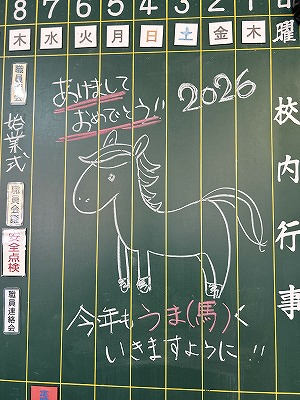 8 7 6 5 4 3 2 1 日
木 水 火 月 日 土 金 木 曜
校内行事
2026
あけまして
おめでとう!!
今年もうま(馬)く
いきますように!!
始業式
安全点検
職員連絡会